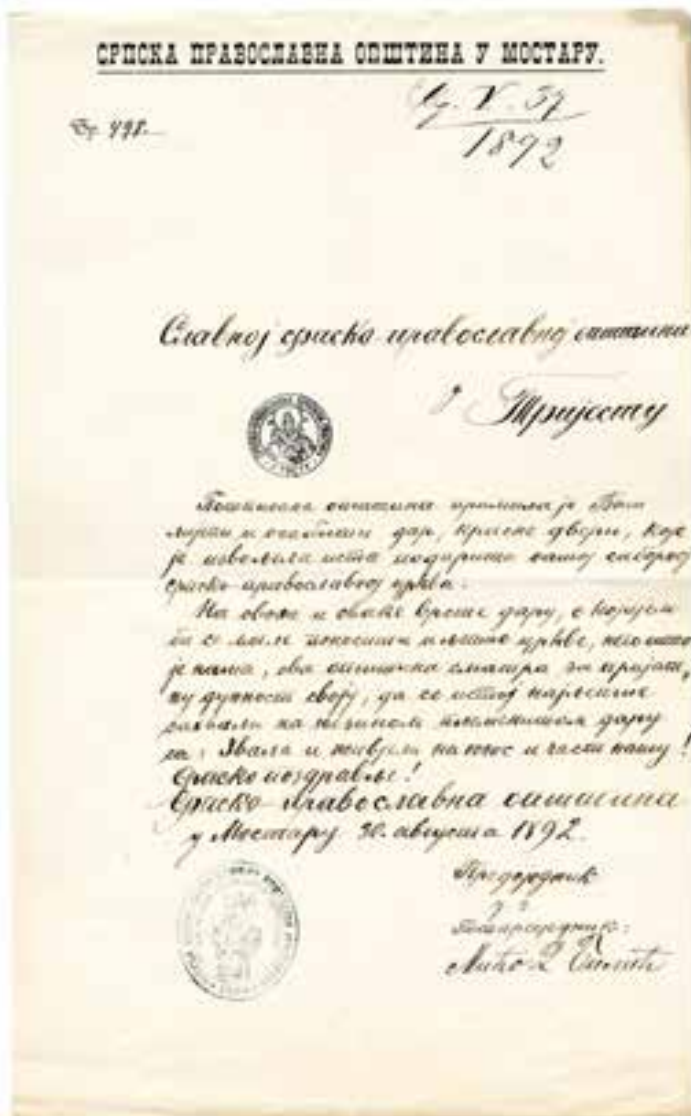 СРПСКА ПРАВОСЛАВНА ОПШТИНА У МОСТАРУ.
Бр. 498.
V. 57
1892
Славној српско православној општини
у Тријесту
општина примила је
дар, красне двери, које
је изволила иста подарити нашој саборној
српско православној цркви.
На овоме и оваке врсте дару, с којијем
би се могле поносити и љепше цркве, него што
је наша, ова општина сматра за пријат-
ну дужност своју, да се истој најљепше
захвали на племенитом дару
са: Звала и живјели на понос и част нашу!
Српско поздравље!
Српско-православна општина
у Мостару 30. августа 1892.
Предсједник
Потпредсједник:
Мићо